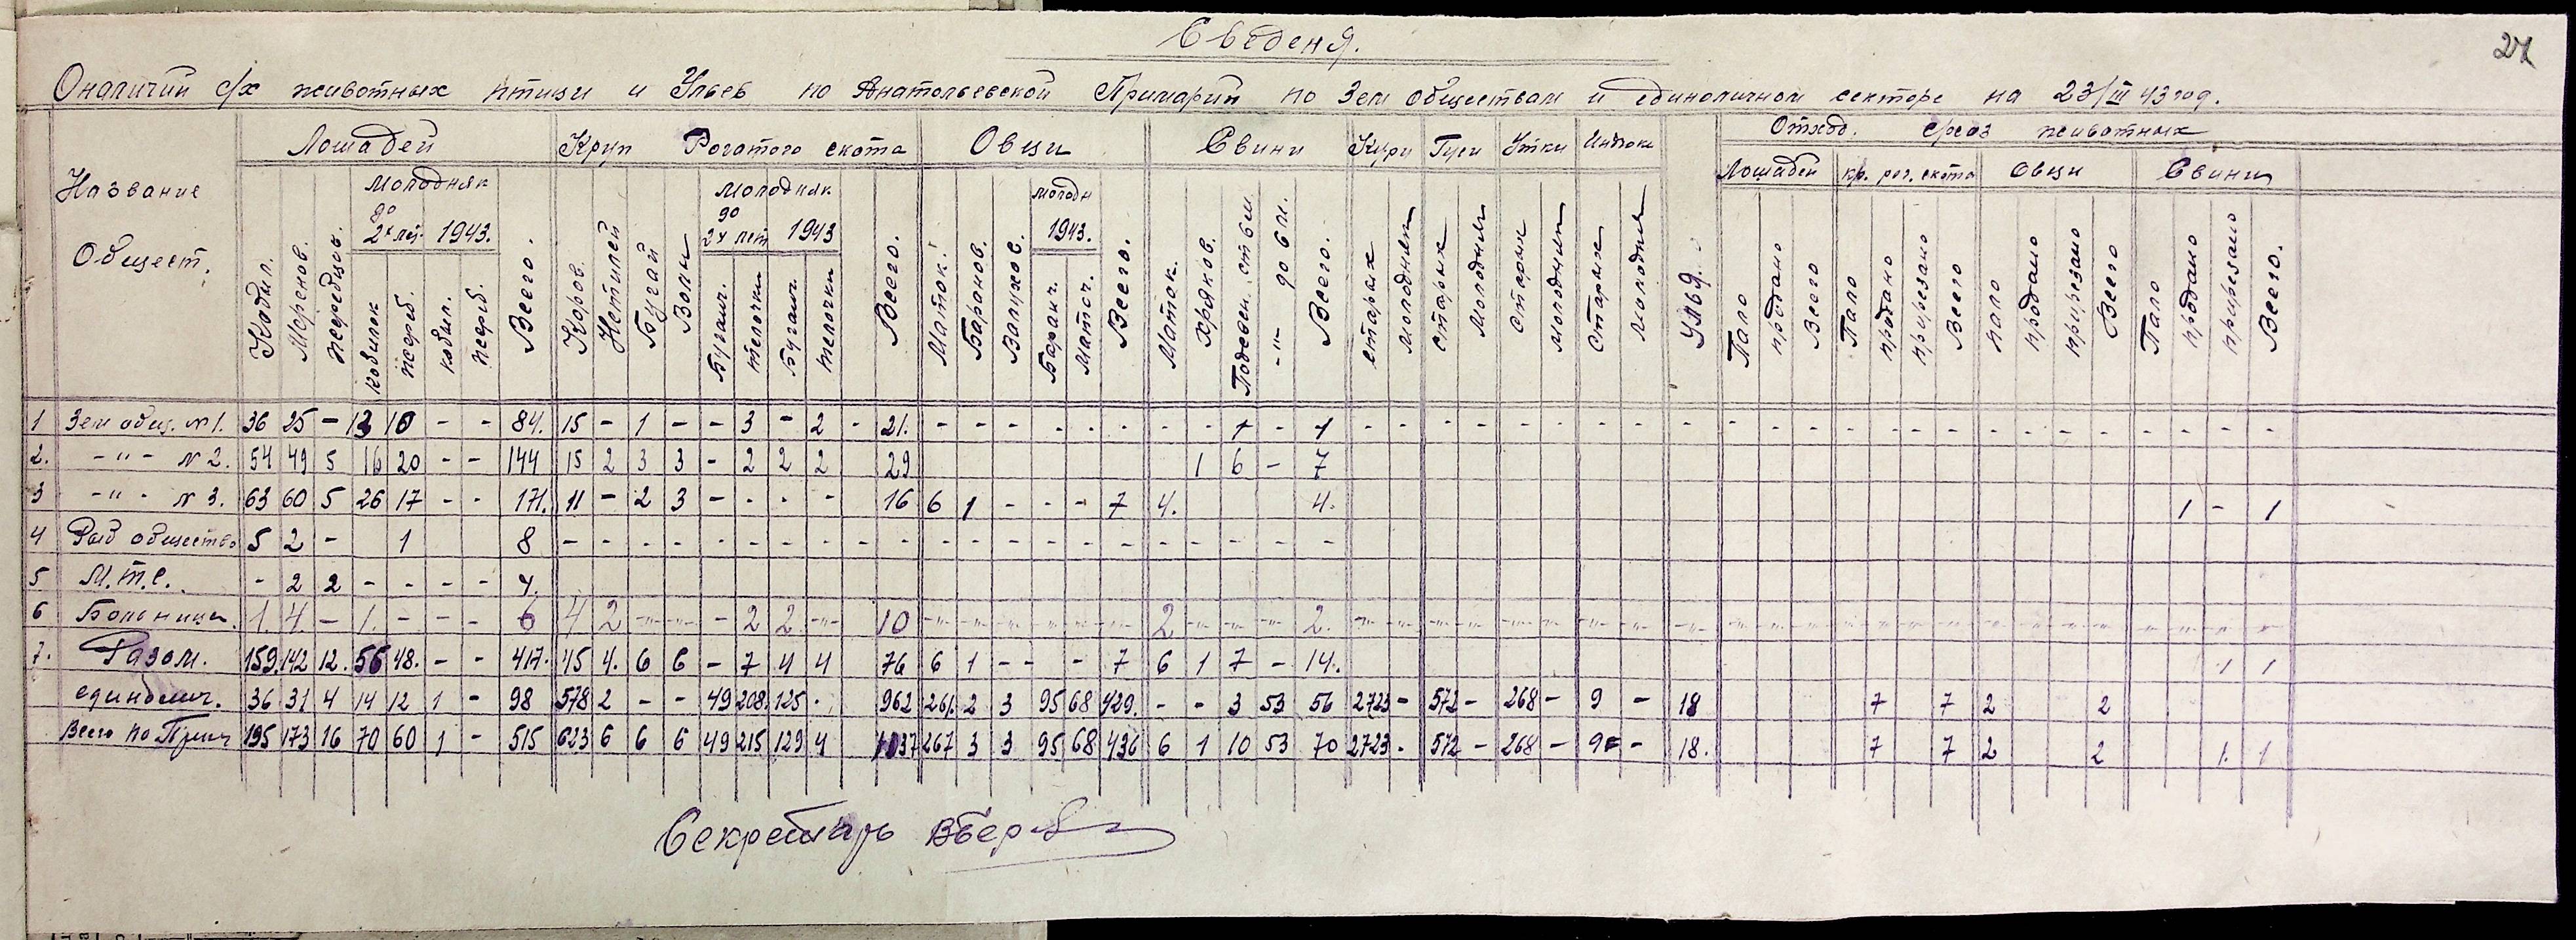 27
Сведеня.
Оналичии с/х животных птицы и Ульев по Анатольевской Примарии по Зем обществам и единоличном секторе на 23/III 43 год.
Название Общест.
Лошадей
Круп Рогатого скота
Овци
Свини
Кури Гуси Утки Индюки
Ульд.
Отход. сред животных
Лошадей кр. рог. скота Овци Свини
Молодняк до 2х лет. 1943.
Молодняк до 2х лет 1943
молодн 1943.
Кобыл. Меренов. жеребцов. кобилек жереб. кобил. жереб. Всего.
Коров. Нетилей Бугай Воли Бугаич. телочки Бугаич. телочки Всего.
Маток. Баранов. Валухов. Баранч. Маточ. Всего.
Маток. Хряков. Подсвен. ст 6 м -"- до 6 м. Всего.
старых молодняк старых молодняк старых молодняк старых молодня
Пало продано Всего Пало продано прирезано Всего пало продано прирезано Всего Пало продано прирезано Всего.
1 Зем общ. №1. 36 25 - 13 10 - - 84. 15 - 1 - - 3 - 2 - 21. - - - - - - - - 1 - 1 - - - - - - - - - - - - - - - - - - - - - - - -
2. -"- №2. 54 49 5 16 20 - - 144 15 2 3 3 - 2 2 2 29 1 6 - 7
3 -"- №3. 63 60 5 26 17 - - 171. 11 - 2 3 - - - - 16 6 1 - - - 7 4. 4. 1 - 1
4 Рыб общество 5 2 - 1 8 - - - - - - - - - - - - - - - - - - - -
5 М.т.с. - 2 2 - - - - 4.
6 Больница. 1. 4. - 1. - - - 6 4 2 -"- -"- - 2 2 -"- 10 -"- -"- -"- -"- -"- -"- 2 -"- -"- -"- 2. -"- -"- -"- -"- -"- -"- -"- -"- -"-
7. Разом. 159. 142 12. 56 48. - - 417. 45 4. 6 6 - 7 4 4 76 6 1 - - - 7 6 1 7 - 14. 1 1
единолич. 36 31 4 14 12 1 - 98 578 2 - - 49 208. 125 - 962 261. 2 3 95 68 429. - - 3 53 56 2723 - 572 - 268 - 9 - 18 7 7 2 2
Всего по Прим 195 173 16 70 60 1 - 515 623 6 6 6 49 215 129 4 1037 267 3 3 95 68 436 6 1 10 53 70 2723 - 572 - 268 - 9 - 18. 7 7 2 2 1. 1
Секретарь